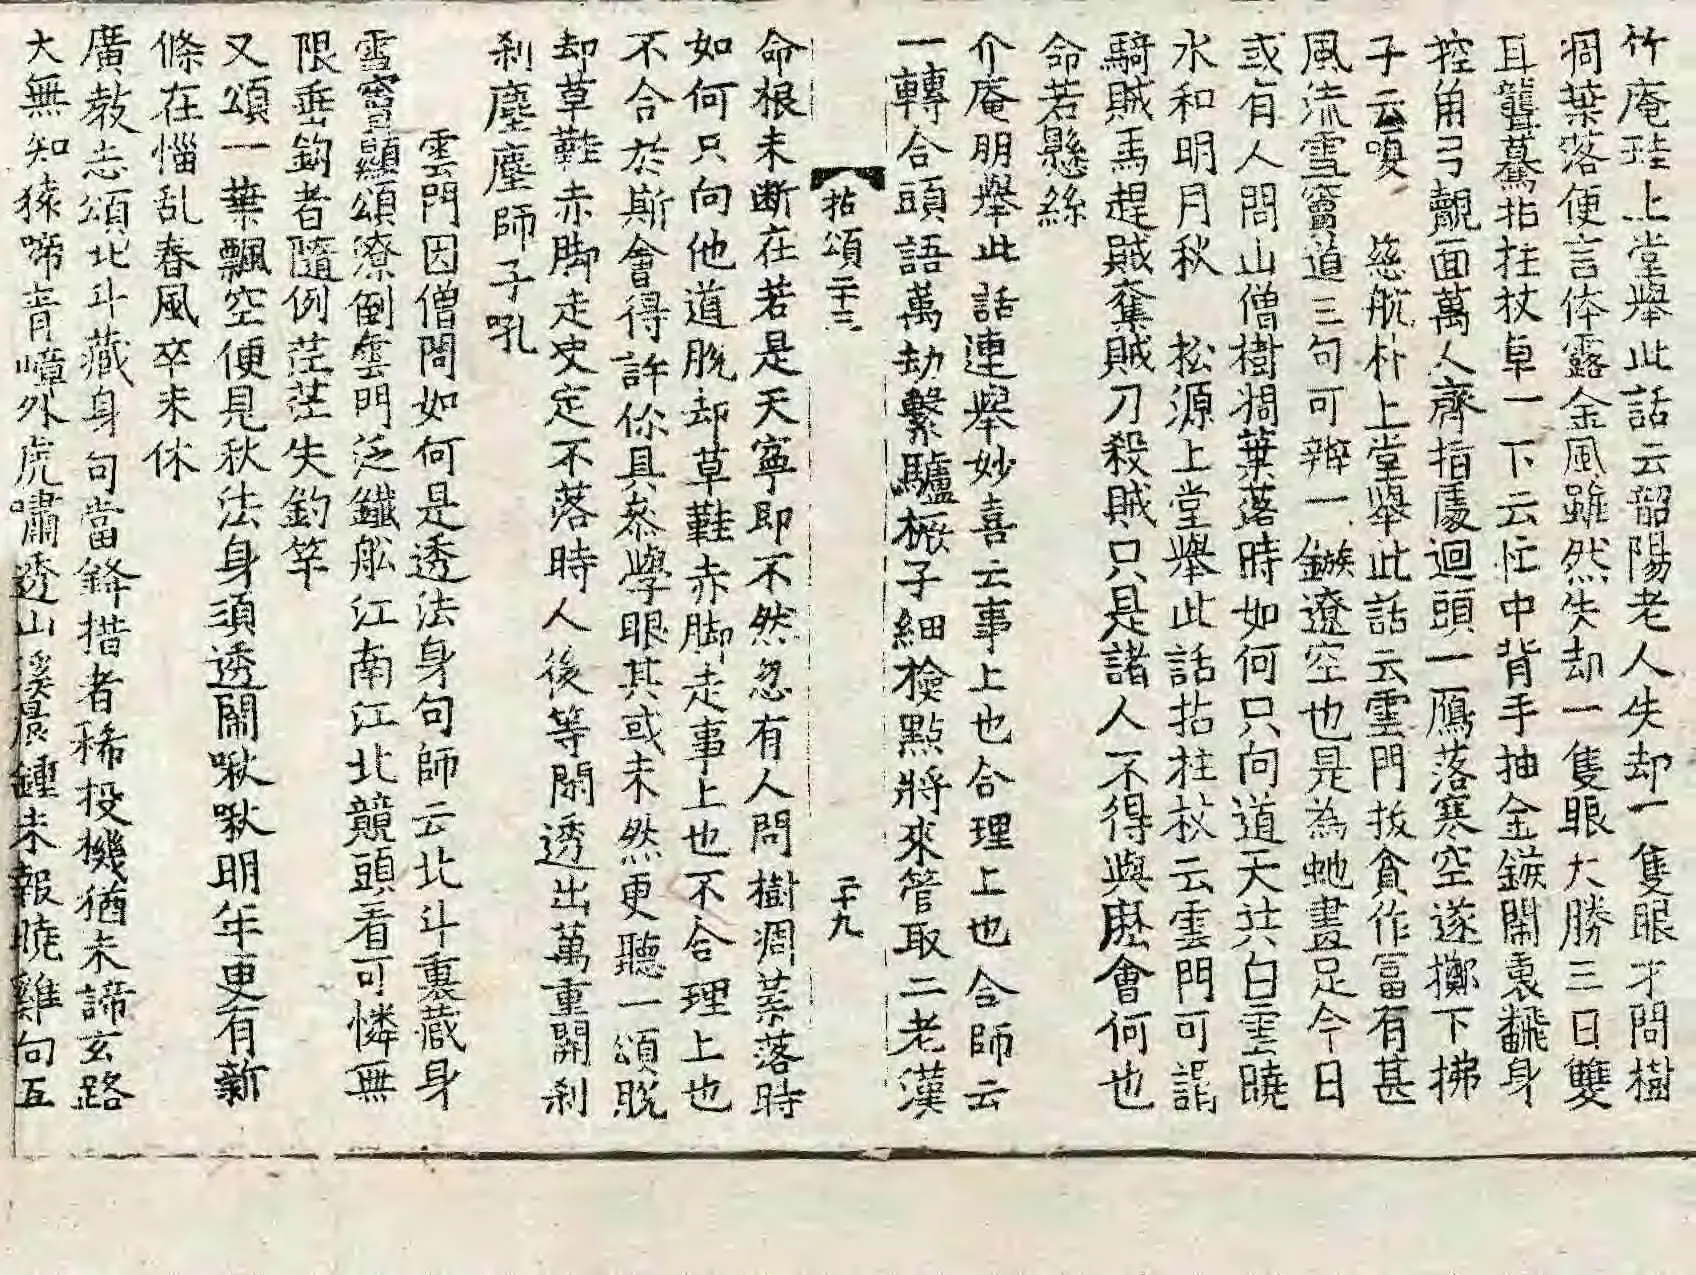 竹庵珪上堂舉此話云韶陽老人失却一隻眼才問樹
凋葉落便言体露金風雖然失却一隻眼大勝三日雙
耳聾驀拈拄杖卓一下云忙中背手抽金鏃閙裏飜身
控角弓覿面萬人齊指處迴頭一鴈落寒空遂擲下拂
子云嗄 慈航朴上堂舉此話云雲門拔貧作冨有甚
風流雪竇道三句可辨一鏃遼空也是為虵畫足今日
或有人問山僧樹凋葉落時如何只向道天共白雲曉
水和明月秋 松源上堂舉此話拈拄杖云雲門可謂
騎賊馬趕賊奪賊刀殺賊只是諸人不得與麽會何也
命若懸絲
介庵朋舉此話連舉妙喜云事上也合理上也合師云
一轉合頭語萬劫繫驢橛子細檢點將來管取二老漢
拈頌二十三 二十九
命根未断在若是天寧即不然忽有人問樹凋葉落時
如何只向他道脫却草鞋赤脚走事上也不合理上也
不合於斯會得許你具叅學眼其或未然更聽一頌脫
却草鞋赤脚走决定不落時人後等閑透出萬重關刹
刹塵塵師子吼
雲門因僧問如何是透法身句師云北斗裏藏身
雪竇顯頌潦倒雲門泛鐵舩江南江北競頭看可憐無
限垂鈎者隨例茫茫失釣竿
又頌一葉飄空便見秋法身須透閙啾啾明年更有新
條在惱乱春風卒未休
廣教志頌北斗藏身句當鋒措者稀投機猶未諦玄路
大無知猿啼青嶂外虎嘯透山溪晨鍾未報曉雞句互